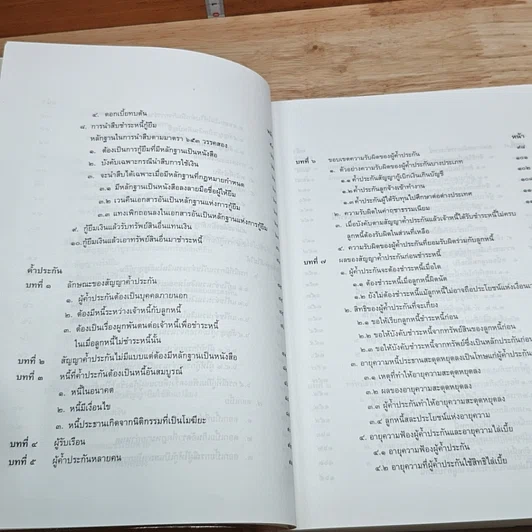 ๔. ดอกเบี้ยทบต้น
๘. การนำสืบชำระหนี้กู้ยืม
หลักฐานในการนำสืบตามมาตรา ๖๕๓ วรรคสอง
๑. ต้องเป็นการกู้ยืมที่มีหลักฐานเป็นหนังสือ
๒. บังคับเฉพาะกรณีนำสืบการใช้เงิน
๓. จะนำสืบได้เฉพาะเมื่อมีหลักฐานที่กฎหมายกำหนด
๓.๑ มีหลักฐานเป็นหนังสือลงลายมือชื่อผู้ให้ยืม
๓.๒ เวนคืนเอกสารอันเป็นหลักฐานแห่งการกู้ยืม
๓.๓ แทงเพิกถอนลงในเอกสารอันเป็นหลักฐานแห่งการกู้ยืม
๙. กู้ยืมเงินแล้วรับทรัพย์สินอื่นแทนเงิน
๑๐. กู้ยืมเงินแล้วเอาทรัพย์สินอื่นมาชำระหนี้
ค้ำประกัน
บทที่ ๑ ลักษณะของสัญญาค้ำประกัน
๑. ผู้ค้ำประกันต้องเป็นบุคคลภายนอก
๒. ต้องมีหนี้ระหว่างเจ้าหนี้กับลูกหนี้
๓. ต้องเป็นเรื่องผูกพันตนต่อเจ้าหนี้เพื่อชำระหนี้
ในเมื่อลูกหนี้ไม่ชำระหนี้นั้น
บทที่ ๒ สัญญาค้ำประกันไม่มีแบบแต่ต้องมีหลักฐานเป็นหนังสือ
บทที่ ๓ หนี้ที่ค้ำประกันต้องเป็นหนี้อันสมบูรณ์
๑. หนี้ในอนาคต
๒. หนี้มีเงื่อนไข
๓. หนี้ประธานเกิดจากนิติกรรมที่เป็นโมฆียะ
บทที่ ๔ ผู้รับเรือน
บทที่ ๕ ผู้ค้ำประกันหลายคน
หน้า
บทที่ ๖ ขอบเขตความรับผิดของผู้ค้ำประกัน
๑. ตัวอย่างความรับผิดของผู้ค้ำประกันบางประเภท
๑.๑ ค้ำประกันสัญญากู้เบิกเงินเกินบัญชี
๑.๒ ค้ำประกันลูกจ้างเข้าทำงาน
๑.๓ ค้ำประกันผู้ได้รับทุนไปศึกษาต่อต่างประเทศ
๒. ความรับผิดในค่าฤชาธรรมเนียม
๓. เมื่อบังคับตามสัญญาค้ำประกันแล้วเจ้าหนี้ได้รับชำระหนี้ไม่ครบ
ลูกหนี้ต้องรับผิดในส่วนที่เหลือ
๔. ความรับผิดของผู้ค้ำประกันที่ยอมรับผิดร่วมกับลูกหนี้
บทที่ ๗ ผลของสัญญาค้ำประกันก่อนชำระหนี้
๑. ผู้ค้ำประกันจะต้องชำระหนี้เมื่อใด
๑.๑ ต้องชำระหนี้เมื่อลูกหนี้ผิดนัด
๑.๒ ยังไม่ต้องชำระหนี้แม้ลูกหนี้ไม่อาจถือประโยชน์แห่งเงื่อนเวลา
๒. สิทธิของผู้ค้ำประกันที่จะเกี่ยง
๒.๑ ขอให้เรียกลูกหนี้ชำระหนี้ก่อน
๒.๒ ขอให้บังคับชำระหนี้จากทรัพย์สินของลูกหนี้ก่อน
๒.๓ ขอให้บังคับชำระหนี้จากทรัพย์ซึ่งเป็นหลักประกันก่อน
๓. อายุความหนี้ประธานสะดุดหยุดลงเป็นโทษแก่ผู้ค้ำประกัน
๓.๑ เหตุที่ทำให้อายุความสะดุดหยุดลง
๓.๒ ผลของอายุความสะดุดหยุดลง
๓.๓ ผู้ค้ำประกันทำให้อายุความสะดุดหยุดลง
๓.๔ ลูกหนี้สละประโยชน์แห่งอายุความ
๔. อายุความฟ้องผู้ค้ำประกันและอายุความไล่เบี้ย
๔.๑ อายุความฟ้องผู้ค้ำประกัน
๔.๒ อายุความที่ผู้ค้ำประกันใช้สิทธิไล่เบี้ย